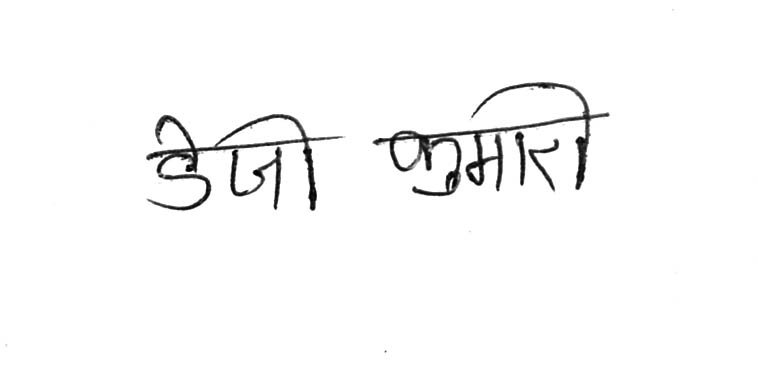 डेजी कुमारी